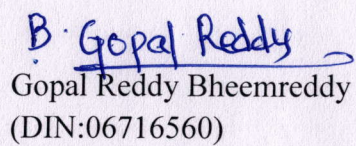 B. Gopal Reddy
Gopal Reddy Bheemreddy
(DIN:06716560)